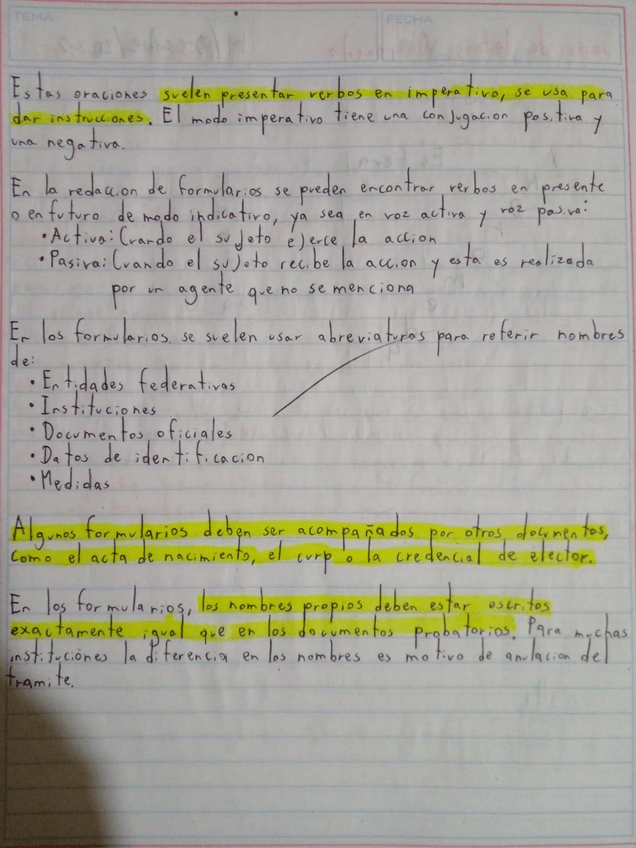 TEMA
FECHA
Estas oraciones suelen presentar verbos en imperativo, se usa para
dar instrucciones. El modo imperativo tiene una conjugacion positiva y
una negativa.
En la redaccion de formularios se pueden encontrar verbos en presente
o en futuro de modo indicativo, ya sea en voz activa y voz pasiva:
• Activa: Cuando el sujeto ejerce la accion
• Pasiva: Cuando el sujeto recibe la accion y esta es realizada
por un agente que no se menciona
En los formularios se suelen usar abreviaturas para referir nombres
de:
• Entidades federativas
• Instituciones
• Documentos oficiales
• Datos de identificacion
• Medidas
Algunos formularios deben ser acompañados por otros documentos,
como el acta de nacimiento, el curp o la credencial de elector.
En los formularios, los nombres propios deben estar escritos
exactamente igual que en los documentos probatorios. Para muchas
instituciónes la diferencia en los nombres es motivo de anulacion del
tramite.